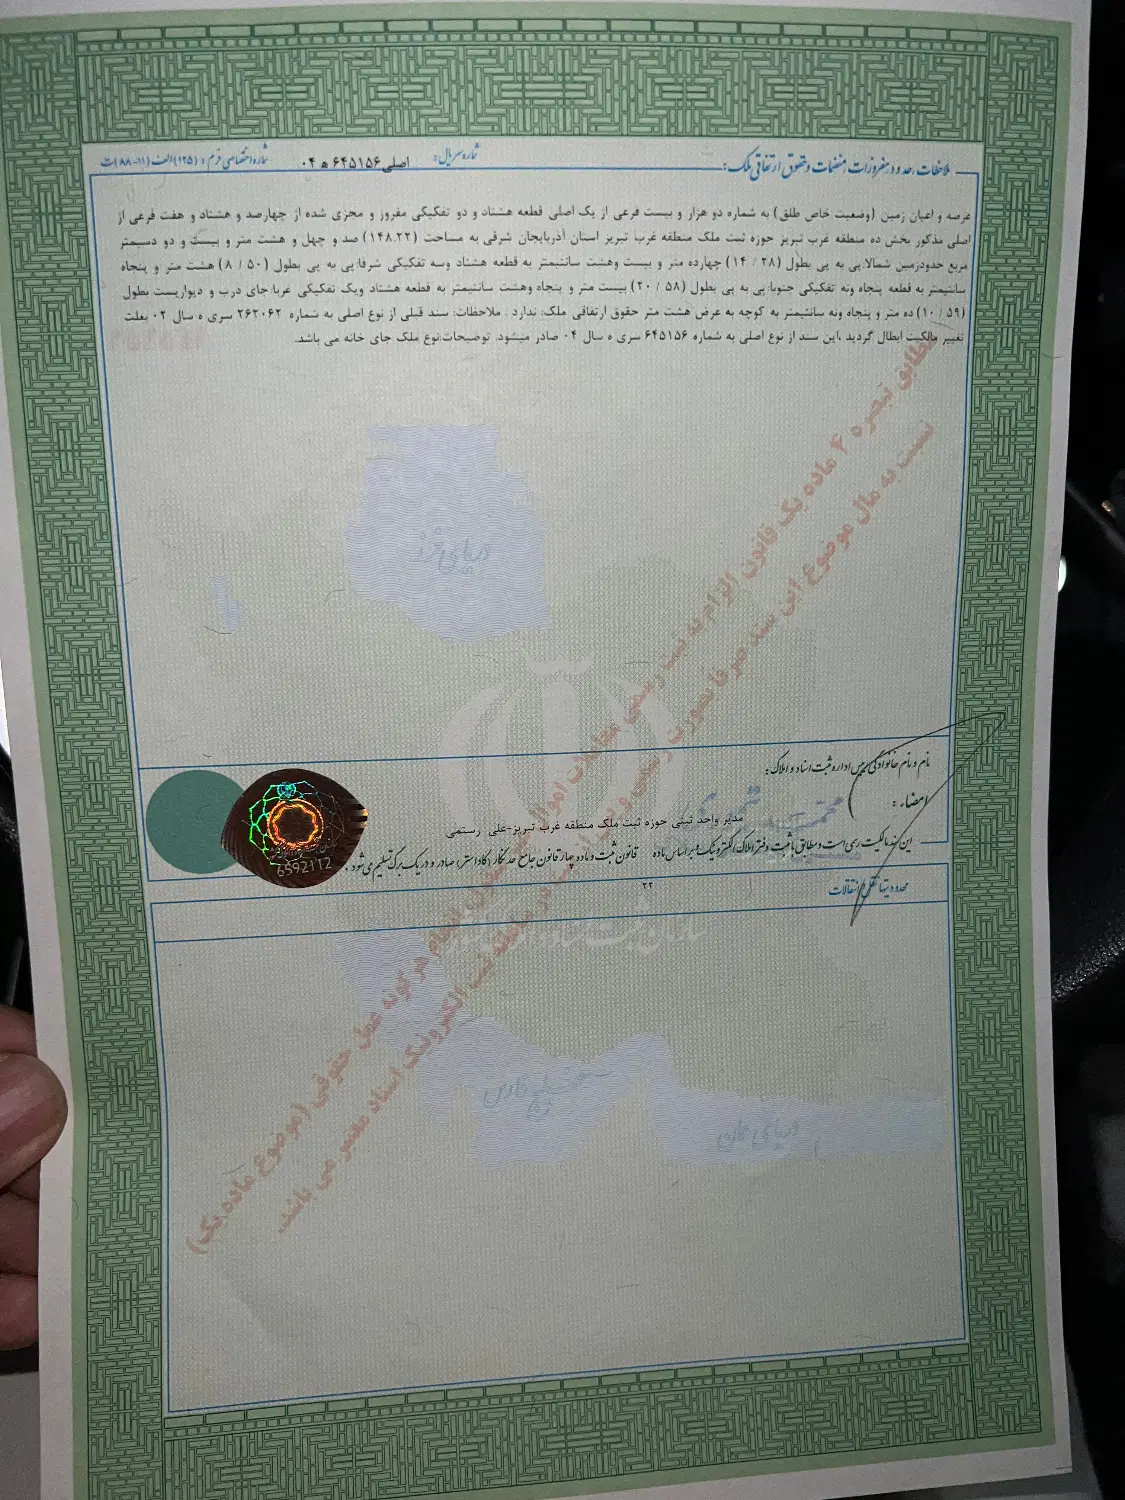 ملاحظات، حدود، مفروزات، منضمات و حقوق ارتفاقی ملک:
شماره سریال: اصلی ۶۴۵۱۵۶ ه ۰۴
شماره اختصاصی فرم: (۱۲۵) الف (۱۱-۸۸)ت
عرصه و اعیان زمین (وضعیت خاص طلق) به شماره دو هزار و بیست فرعی از یک اصلی قطعه هشتاد و دو تفکیکی مفروز و مجزی شده از چهارصد و هشتاد و هفت فرعی از
اصلی مذکور بخش ده منطقه غرب تبریز حوزه ثبت ملک منطقه غرب تبریز استان آذربایجان شرقی به مساحت (۱۴۸.۲۲) صد و چهل و هشت متر و بیست و دو دسیمتر
مربع حدودزمین شمالا:پی به پی بطول (۲۸ / ۱۴) چهارده متر و بیست وهشت سانتیمتر به قطعه هشتاد وسه تفکیکی شرقا:پی به پی بطول (۵۰ / ۸) هشت متر و پنجاه
سانتیمتر به قطعه پنجاه ونه تفکیکی جنوبا:پی به پی بطول (۵۸ / ۲۰) بیست متر و پنجاه وهشت سانتیمتر به قطعه هشتاد ویک تفکیکی غربا:جای درب و دیواریست بطول
(۵۹ / ۱۰) ده متر و پنجاه ونه سانتیمتر به کوچه به عرض هشت متر حقوق ارتفاقی ملک: ندارد . ملاحظات: سند قبلی از نوع اصلی به شماره ۲۶۲۰۶۲ سری ه سال ۰۲ بعلت
تغییر مالکیت ابطال گردید ،این سند از نوع اصلی به شماره ۶۴۵۱۵۶ سری ه سال ۰۴ صادر میشود. توضیحات:نوع ملک جای خانه می باشد.
مطابق تبصره ۴ ماده یک قانون الزام به ثبت رسمی معاملات اموال غیرمنقول، انجام هرگونه عمل حقوقی (موضوع ماده یک)
نسبت به مال موضوع این سند صرفا بصورت رسمی و در سامانه ثبت الکترونیک اسناد معتبر می باشد.
دریای خزر
نام و نام خانوادگی رییس اداره ثبت اسناد و املاک:
امضاء :
مدیر واحد ثبتی حوزه ثبت ملک منطقه غرب تبریز-علی رستمی
این سند مالکیت رسمی است و مطابق با ثبت دفتر املاک الکترونیک و بر اساس ماده ۲۲ قانون ثبت و ماده چهار قانون جامع حدنگار (کاداستر) صادر و در یک برگ تسلیم می شود.
6592112
محدودیتها نقل و انتقالات
خلیج فارس
دریای عمان